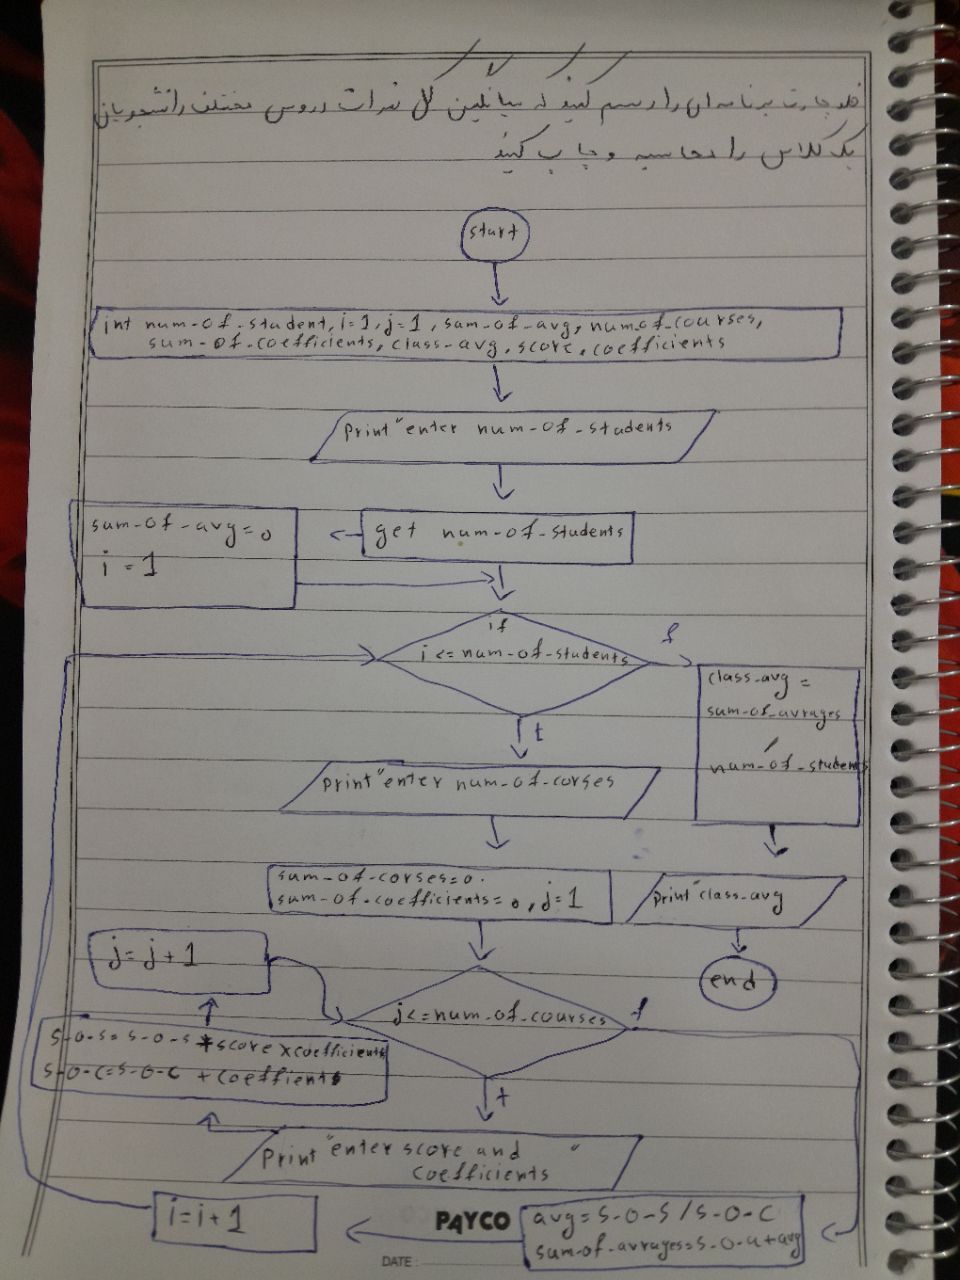 فلوچارت برنامه ای را رسم کنید که میانگین کل نمرات دروس مختلف دانشجویان
یک کلاس را محاسبه و چاپ کنید
start
int num-of-student, i=1, j=1, sum-of-avg, num-of-courses,
sum-of-coefficients, class-avg, score, coefficients
print "enter num-of-students
get num-of-students
sum-of-avg=0
i=1
if
i<=num-of-students
f
t
class-avg=
sum-of-avrages
/
num-of-students
print "enter num-of-corses
sum-of-corses=0.
sum-of-coefficients=0, j=1
print "class-avg
end
j=j+1
j<=num-of-courses
f
t
s-o-s=s-o-s+score×coefficients
s-o-c=s-o-c+coeffients
print "enter score and "
coefficients
i=i+1
PAYCO
avg=s-o-s/s-o-c
sum-of-avrages=s-o-a+avg
DATE: